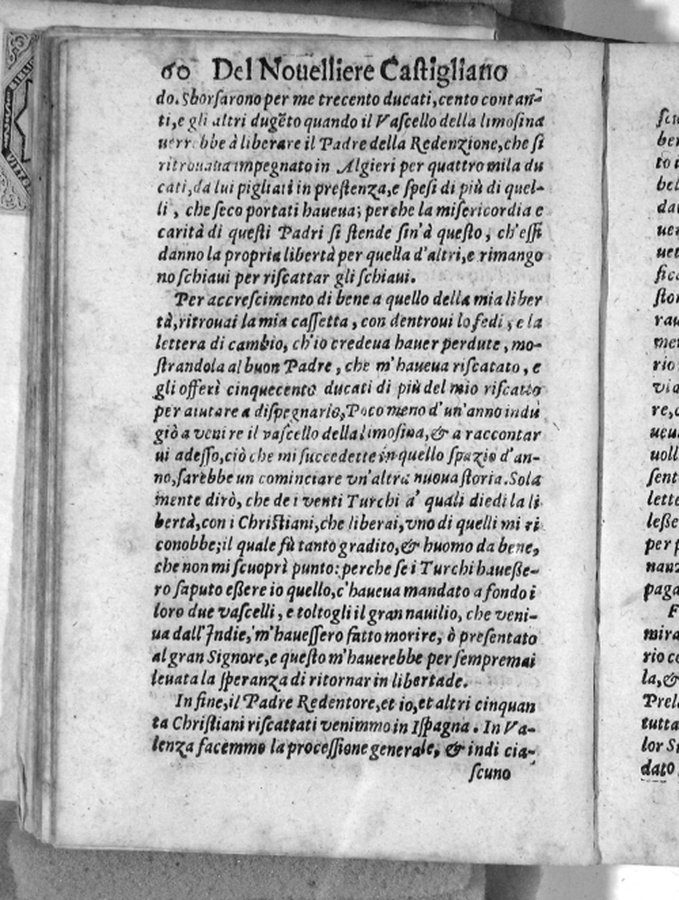 60 Del Nouelliere Castigliano
do. Sborsarono per me trecento ducati, cento contan̄-
ti, e gli altri dugēto quando il Vascello della limosina
uerrebbe à liberare il Padre della Redenzione, che si
ritrouaua impegnato in Algieri per quattro mila du
cati, da lui pigliati in prestenza, e spesi di più di quel-
li, che seco portati haueua; perche la misericordia e
carità di questi Padri si stende sin'à questo, ch'essi
danno la propria libertà per quella d'altri, e rimango
no schiaui per riscattar gli schiaui.
Per accrescimento di bene a quello della mia liber
tà, ritrouai la mia cassetta, con dentroui lo fedi, e la
lettera di cambio, ch'io credeua hauer perdute, mo-
strandola al buon Padre, che m'haueua riscatato, e
gli offerì cinquecento ducati di più del mio riscatto
per aiutare a dispegnarlo, Poco meno d'un'anno indu
giò a venire il vascello della limosina, & a raccontar
ui adesso, ciò che mi succedette in quello spazio d'an-
no, sarebbe un cominciare vn'altra nuoua storia. Sola
mente dirò, che de i venti Turchi a' quali diedi la li
bertà, con i Christiani, che liberai, vno di quelli mi ri
conobbe; il quale fù tanto gradito, & huomo da bene,
che non mi scuoprì punto: perche se i Turchi hauesse-
ro saputo essere io quello, c'haueua mandato a fondo i
loro due vascelli, e toltogli il gran nauilio, che veni-
ua dall'Indie, m'hauessero fatto morire, ò presentato
al gran Signore, e questo m'hauerebbe per sempre mai
leuata la speranza di ritornar in libertade.
In fine, il Padre Redentore, et io, et altri cinquan
ta Christiani riscattati venimmo in Ispagna. In Va-
lenza facemmo la processione generale, & indi cia-
scuno